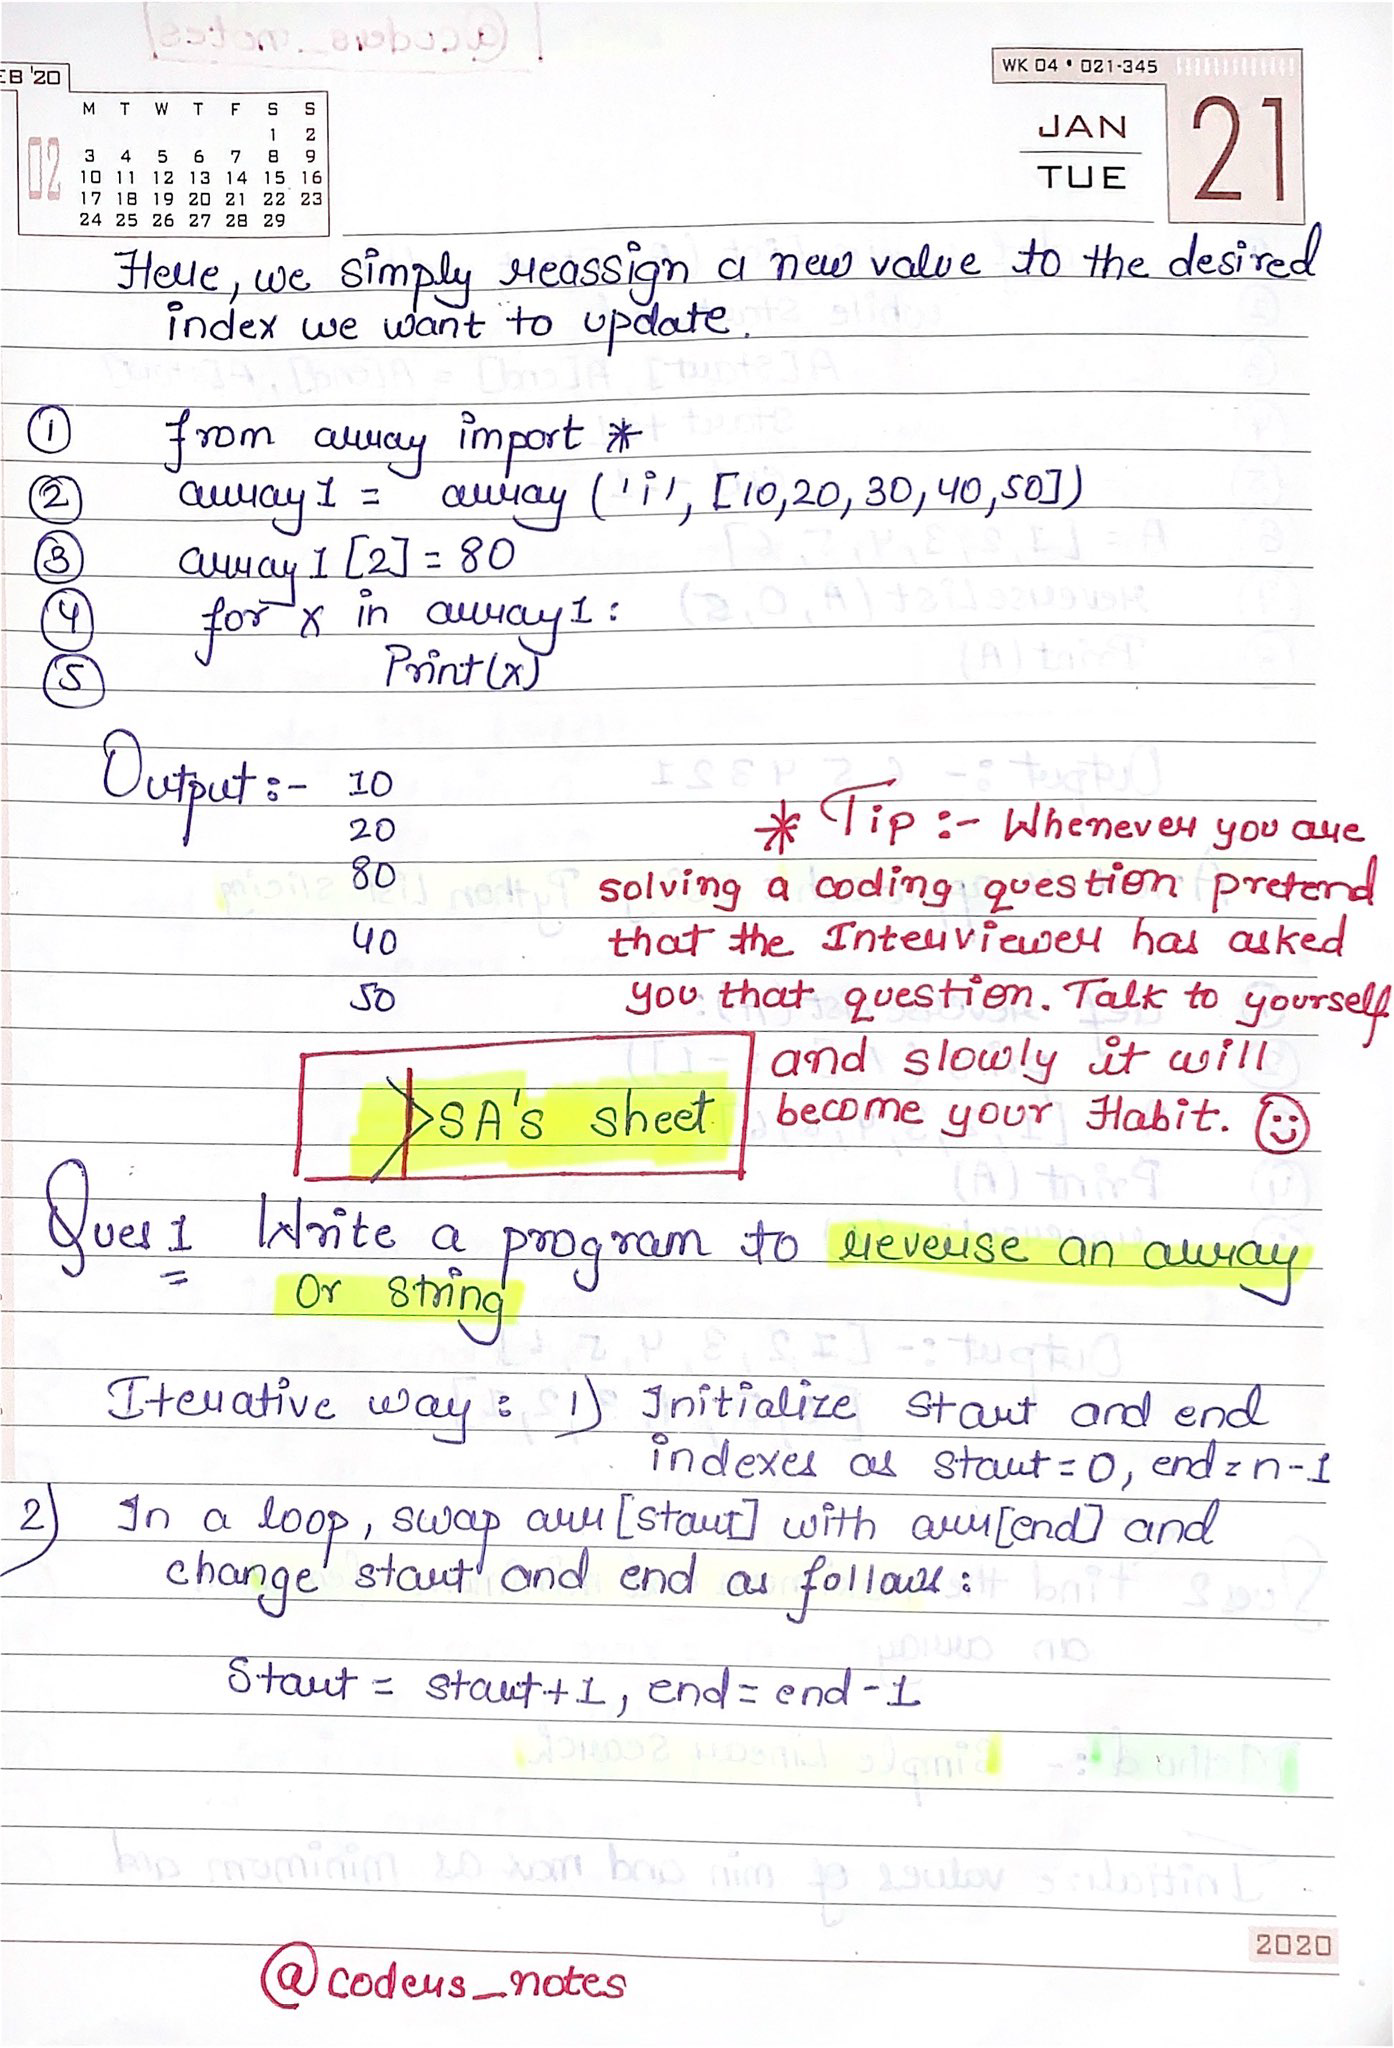 EB '20
02
M T W T F S S
1 2
3 4 5 6 7 8 9
10 11 12 13 14 15 16
17 18 19 20 21 22 23
24 25 26 27 28 29
WK 04 • 021-345
JAN
TUE
21
Here, we simply reassign a new value to the desired
index we want to update.
1 from array import *
2 array1 = array ('i', [10,20,30,40,50])
3 array1[2] = 80
4 for x in array1:
5 Print(x)
Output :- 10
20
80
40
50
* Tip :- Whenever you are
solving a coding question pretend
that the Interviewer has asked
you that question. Talk to yourself
and slowly it will
become your Habit.
SA's sheet
Ques 1 Write a program to reverse an array
or string
Iterative way: 1) Initialize start and end
indexes as start = 0, end = n-1
2) In a loop, swap arr[start] with arr[end] and
change start and end as follows:
Start = start+1, end = end-1
2020
@coders_notes